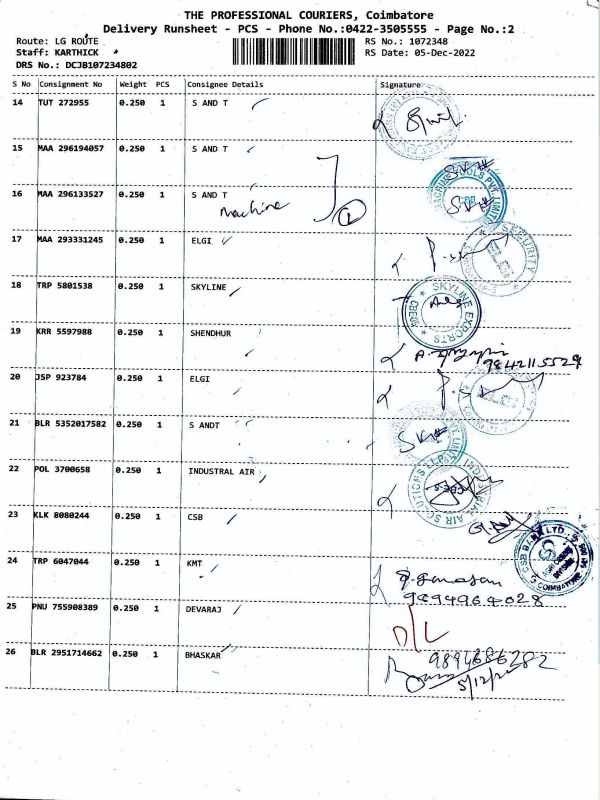 THE PROFESSIONAL COURIERS, Coimbatore
Delivery Runsheet - PCS - Phone No.:0422-3505555 - Page No.:2
Route: LG ROUTE
RS No.: 1072348
Staff: KARTHICK
RS Date: 05-Dec-2022
DRS No.: DCJB107234802
S No Consignment No Weight PCS Consignee Details Signature
14 TUT 272955 0.250 1 S AND T
15 MAA 296194057 0.250 1 S AND T
16 MAA 296133527 0.250 1 S AND T
Machine
17 MAA 293331245 0.250 1 ELGI
SECURITY
18 TRP 5801538 0.250 1 SKYLINE
SKYLINE EXPORTS
19 KRR 5597988 0.250 1 SHENDHUR
9842115529
20 JSP 923784 0.250 1 ELGI
21 BLR 5352017582 0.250 1 S ANDT
22 POL 3700658 0.250 1 INDUSTRIAL AIR
AIR SOLUTIONS LLP
23 KLK 8080244 0.250 1 CSB
CSB BANK LTD.
COIMBATORE
24 TRP 6047044 0.250 1 KMT
9894964028
25 PNU 755908389 0.250 1 DEVARAJ
D/L
26 BLR 2951714662 0.250 1 BHASKAR
9894686282